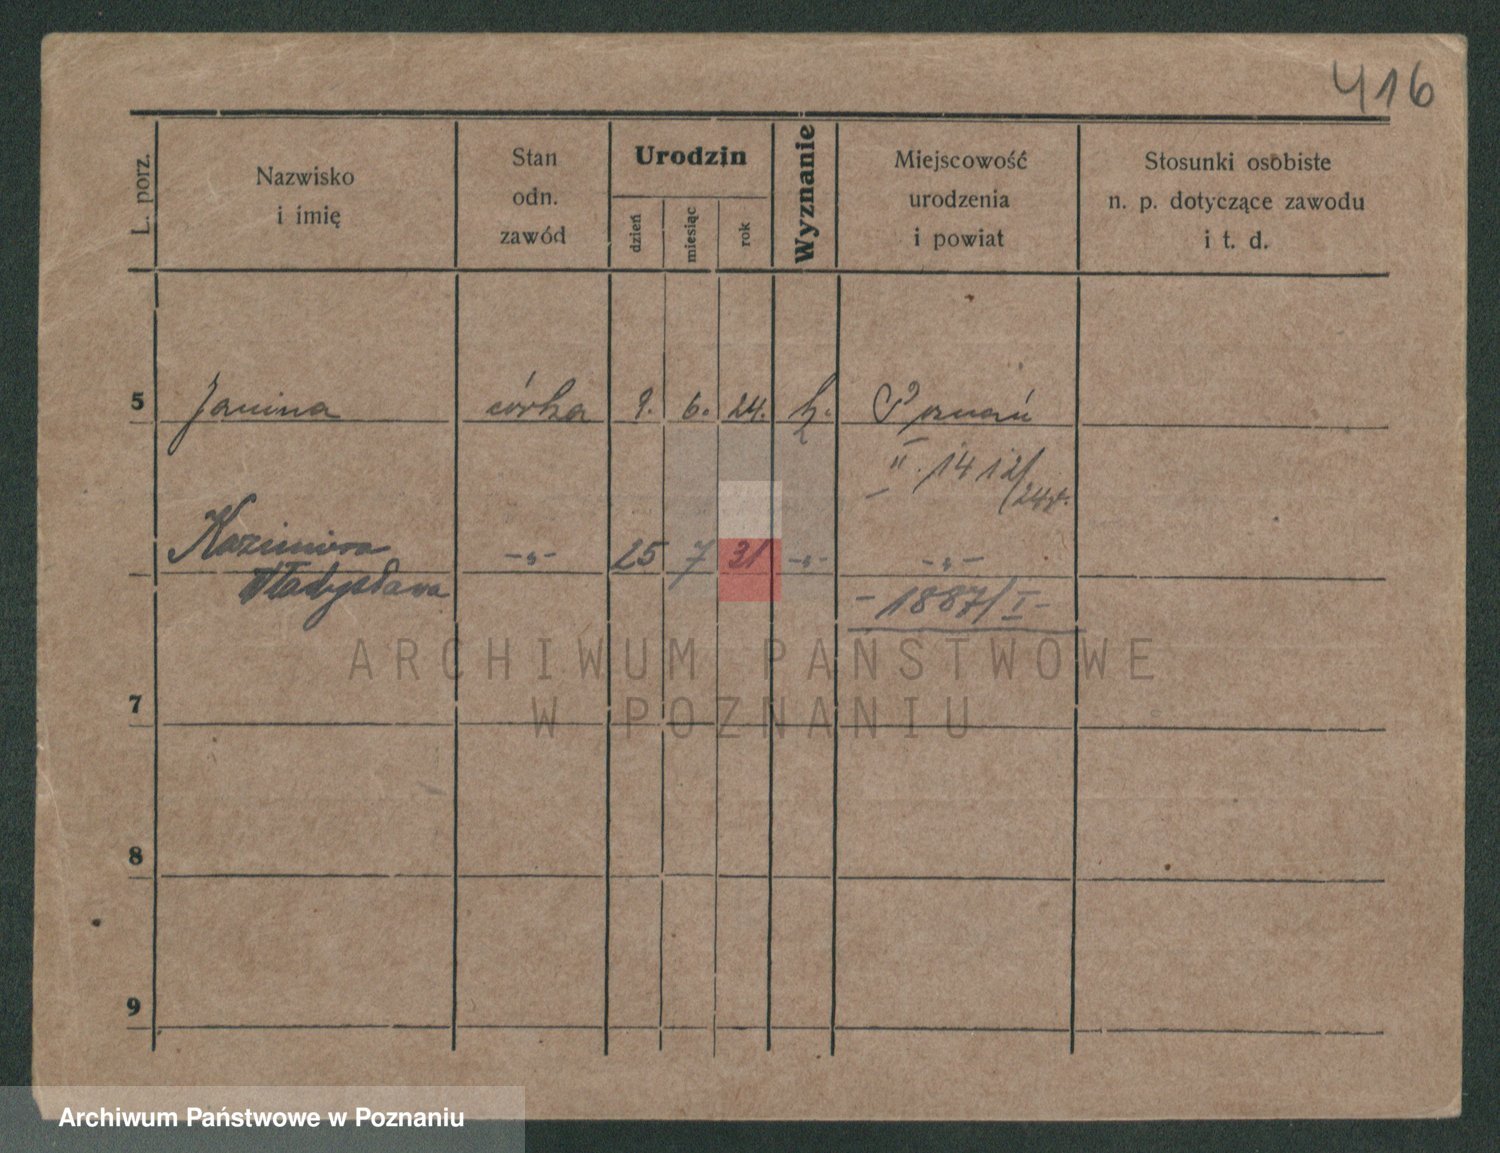 416
L. porz.
Nazwisko
i imię
Stan
odn.
zawód
Urodzin
dzień
miesiąc
rok
Wyznanie
Miejscowość
urodzenia
i powiat
Stosunki osobiste
n. p. dotyczące zawodu
i t. d.
5 Janina córka 9. 6. 24. k. Poznań
II. 1412/24r.
Kazimiera -„- 25 7 31 -„- -„-
Władysława -1887/I-
ARCHIWUM PAŃSTWOWE
W POZNANIU
7
8
9
Archiwum Państwowe w Poznaniu